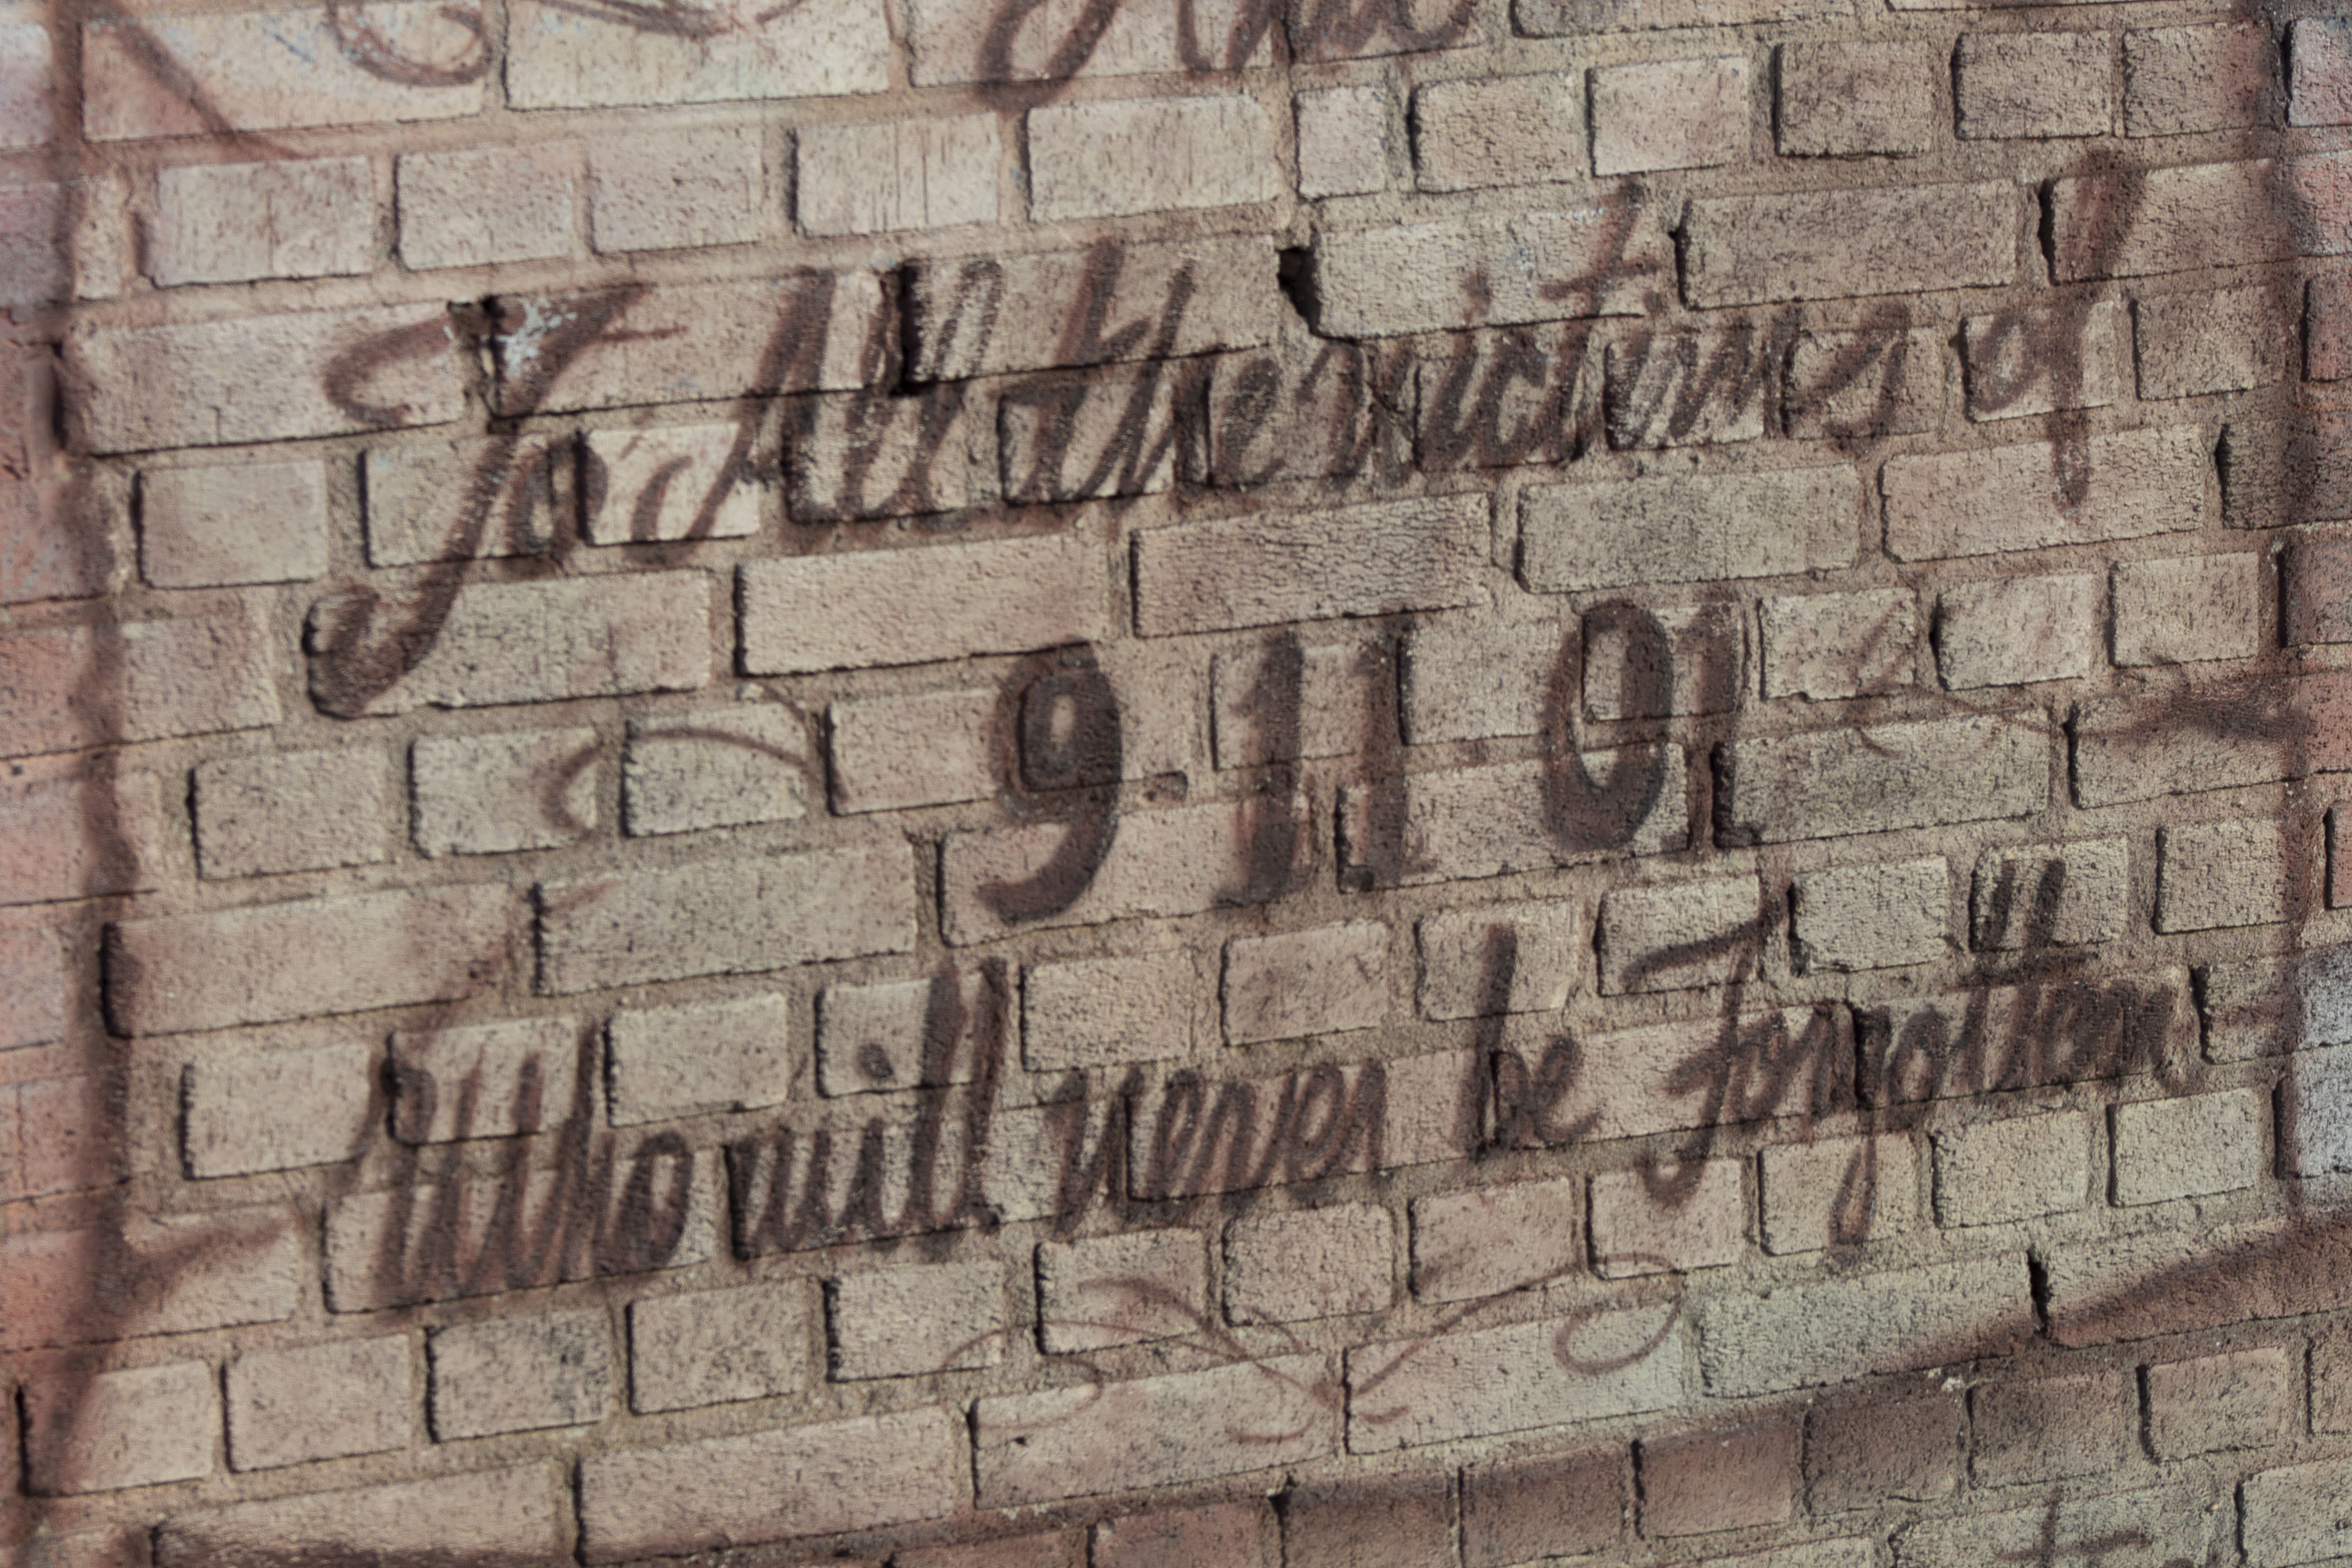 For All the victims of
9-11 01
Who will never be Forgotten